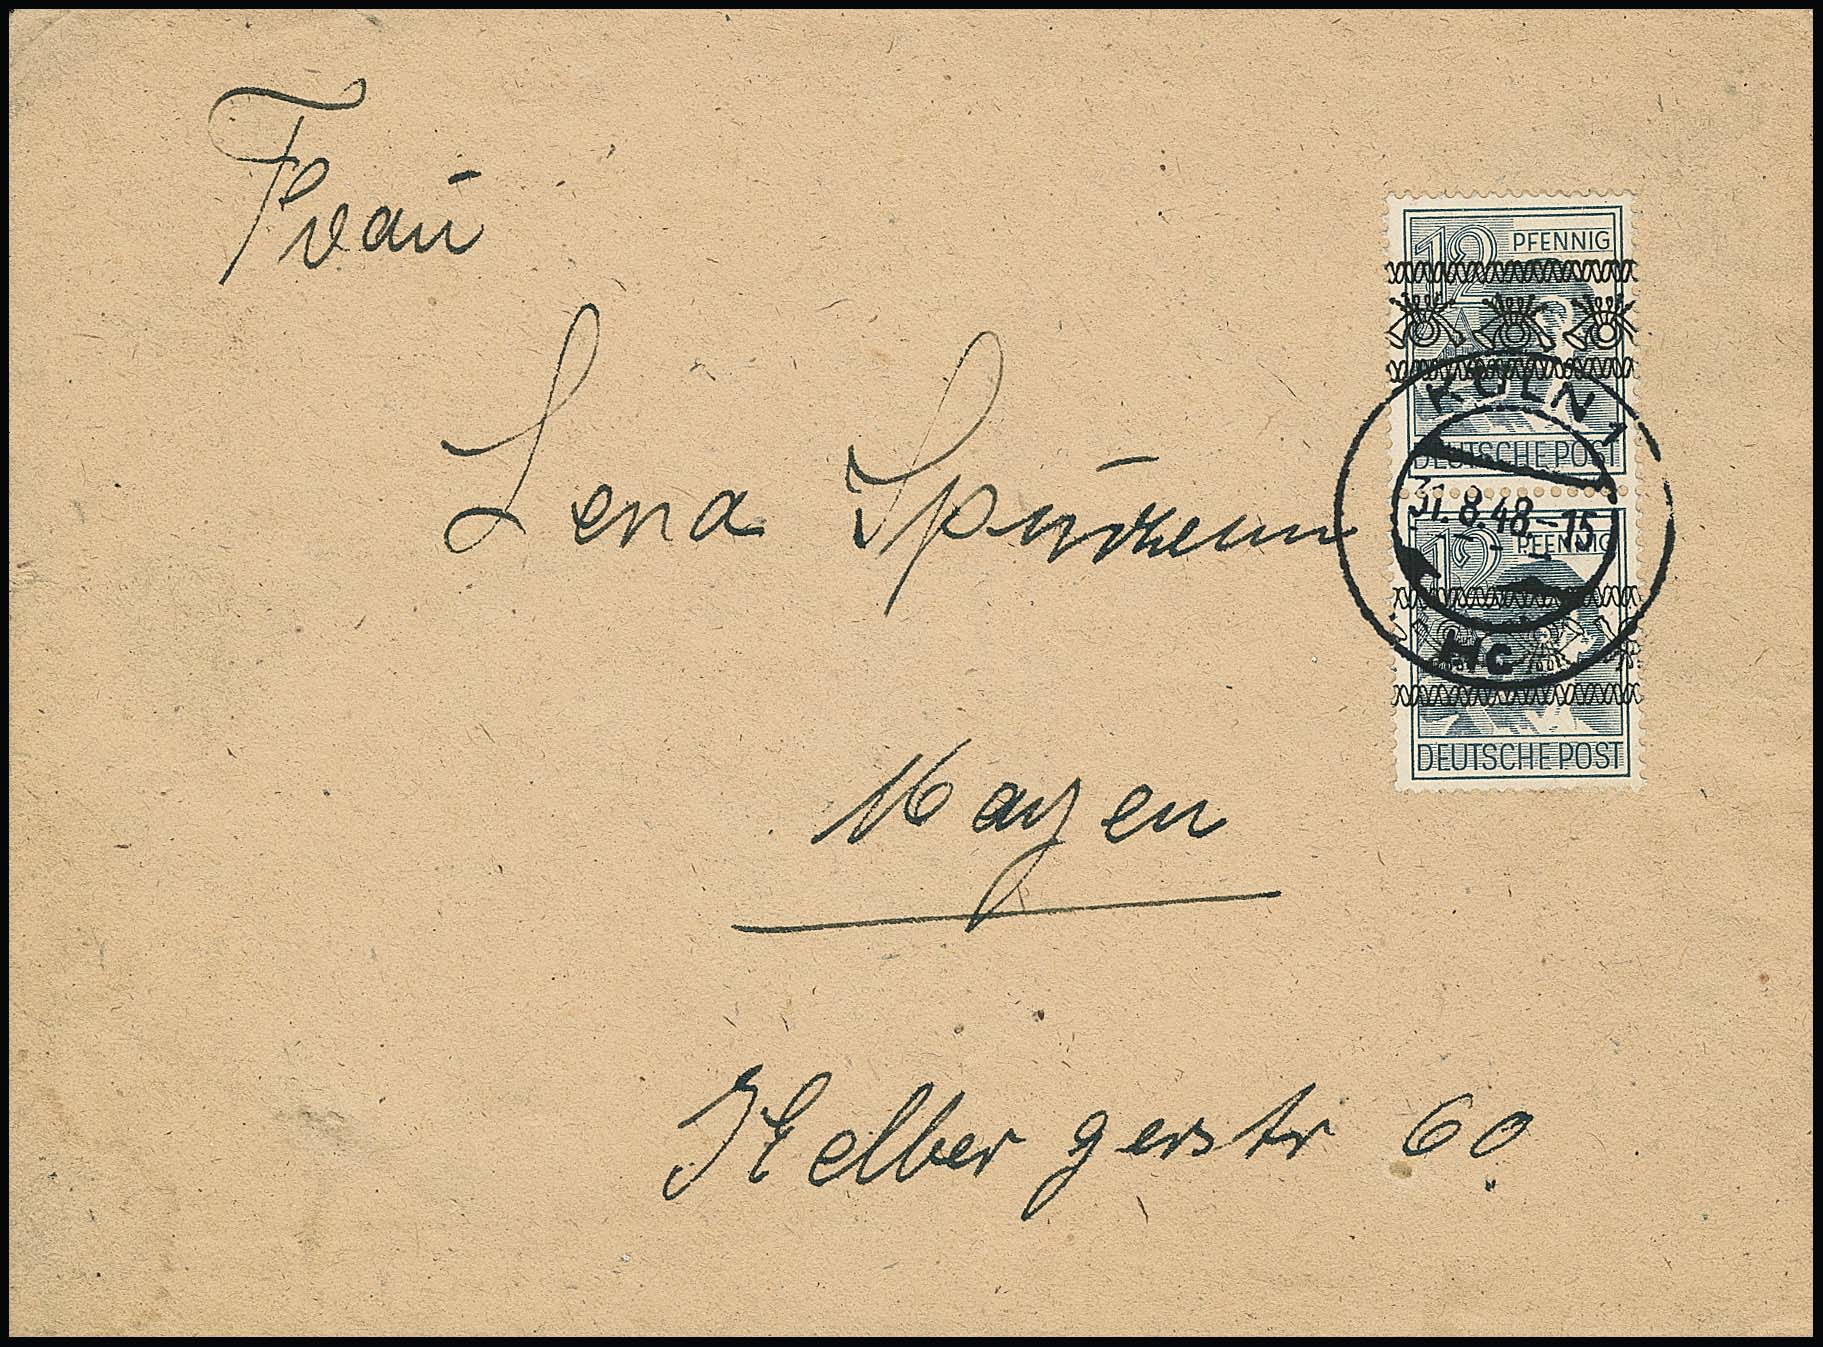 Frau
Lena
Mayen
Kelbergerstr 60
12 PFENNIG
DEUTSCHE POST
KÖLN 1
31.8.48-15
12 PFENNIG
HC
DEUTSCHE POST